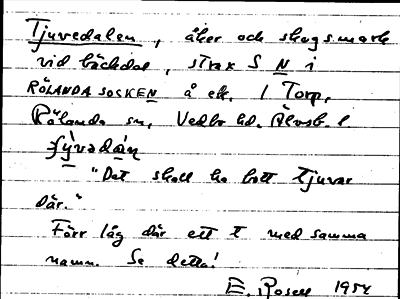 Tjuvedalen, åker och skogsmark
vid bäckdal, strax S N i
RÖLANDA SOCKEN å ek. 1 Torp,
Rölanda sn, Vedbo hd. Älvsb. l
"Det skall ha bott tjuvar
där."
Förr låg där ett t med samma
namn. Se detta!
E. Rosell 1954